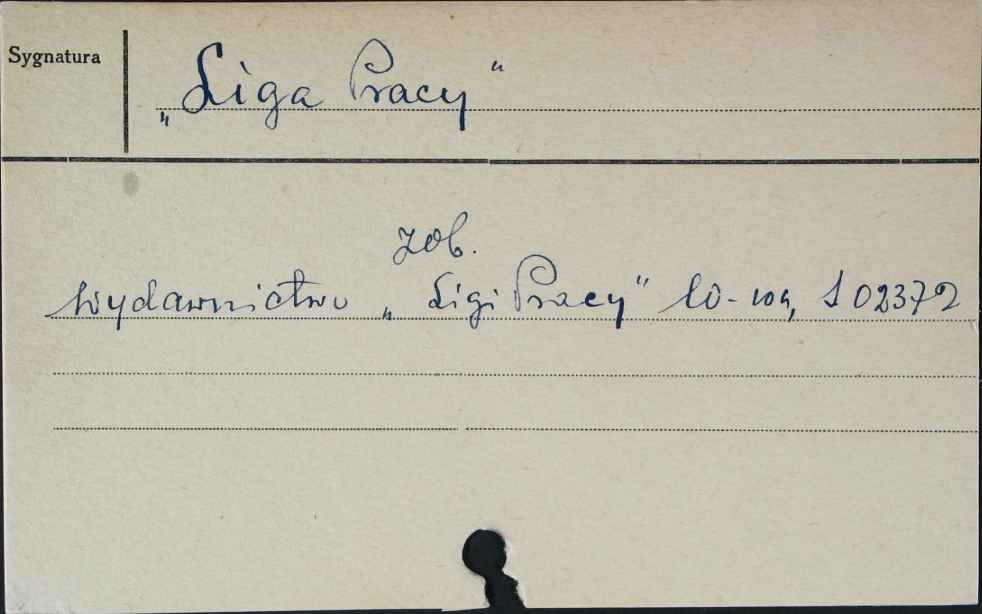 Sygnatura
„Liga Pracy“
zob.
Wydawnictwo „Ligi Pracy“ W-wa, S 02372